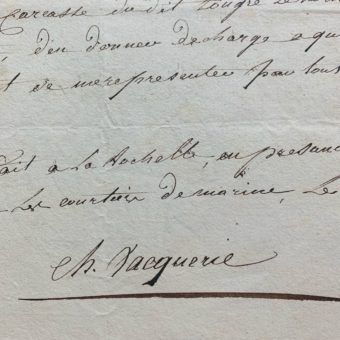 Carcasse du dit Lougre Le
, d'en donner decharge a qu
t de me representer par tout
fait a La Rochelle, en presanc
Les courtier de marine, Le
Ch. Vacquerie